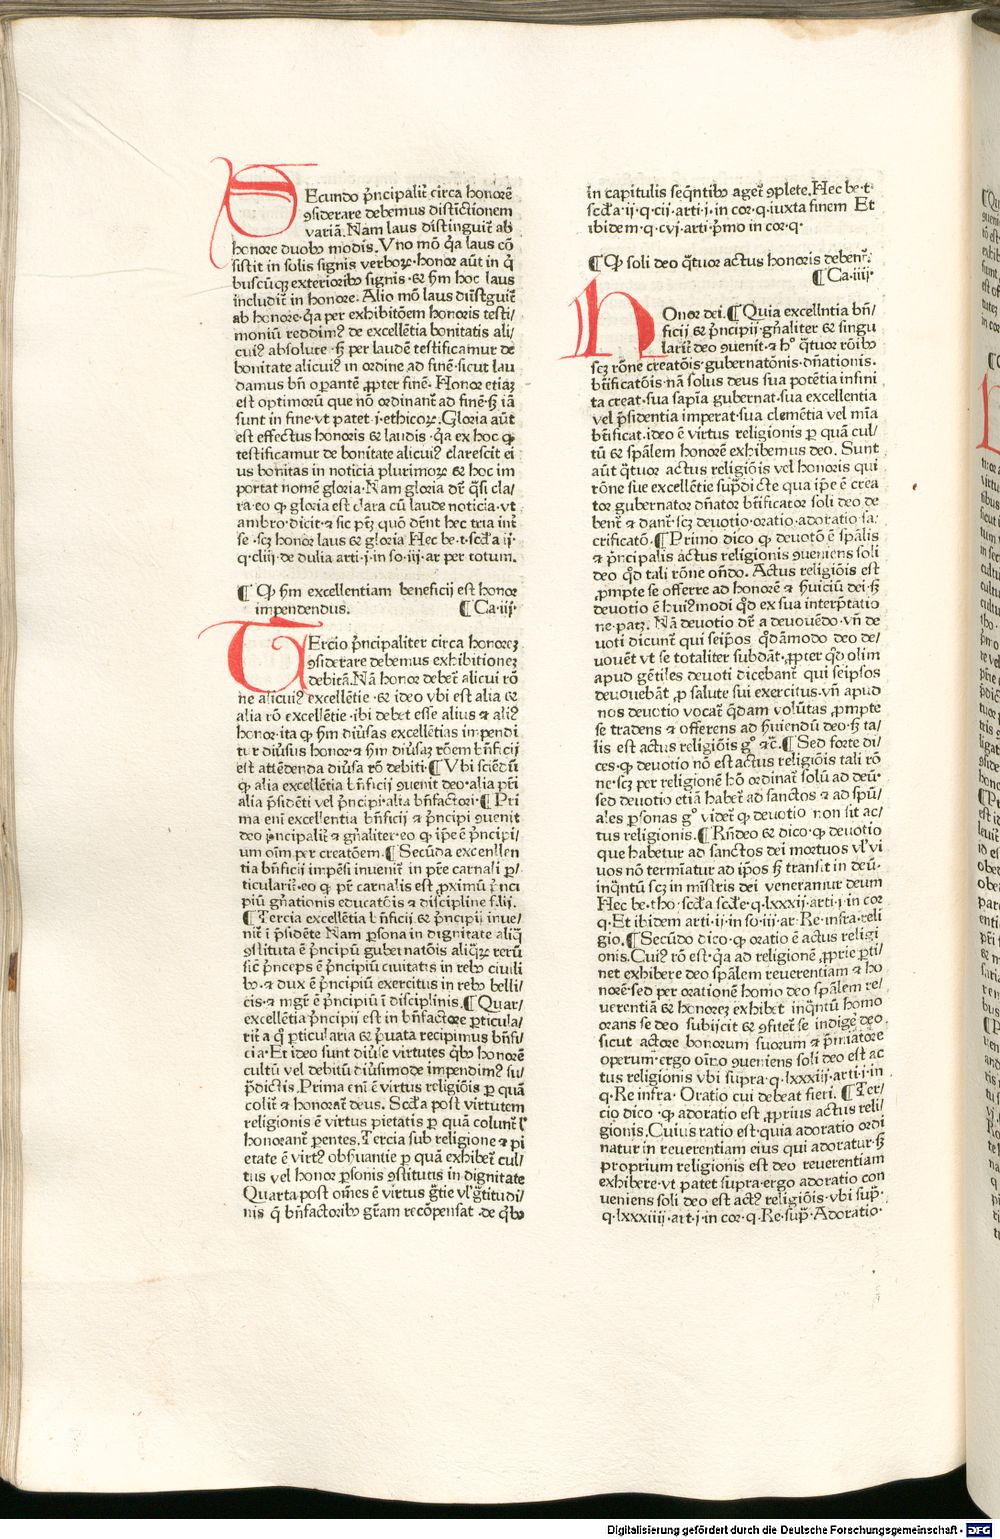 SEcundo p̄ncipalit̄ circa honorē
ꝯsiderare debemus distictionem
variā. Nam laus distinguit̄ ab
honore duobꝰ modis. Uno mō q̄a laus cō
sistit in solis signis verboꝝ·honor aūt in q̄
buscūqꝫ exterioribꝰ signis·& s̄m hoc laus
includit̄ in honore. Alio mō laus diistguit̄
ab honore·q̄a per exhibitōem honoris testi/
moniū reddimꝰ de excellētia bonitatis ali/
cuiꝰ absolute·s̄ꝫ per laudē testificamur de
bonitate alicuiꝰ in ordine ad finē·sicut lau
damus bn̄ oꝑantē ꝓpter finē. Honor etiaꝫ
est optimorū que nō ordinant̄ ad finē·s̄ꝫ iā
sunt in fine·vt patet·j·ethicoꝝ. Gloria aūt
est effectus honoris & laudis·q̄a ex hoc ꝙ
testificamur de bonitate alicuiꝰ clarescit ei
us bonitas in noticia plurimoꝝ & hoc im
portat nomē gloria·Nam gloria dr̄ q̄si cla/
ra·eo ꝙ gloria est clara cū laude noticia·vt
ambro·dicit·⁊ sic pꝫ quō dn̄t hec tria int̄
se·scꝫ honor laus & gloria Hec be·t·scd̄a ij·
q·cliij·de dulia arti·j·in so·iij·ar per totum.
¶ Ꝙ s̄m excellentiam beneficij est honor
impendendus. ¶ Ca·iij·
TErcio p̄ncipaliter circa honoreꝫ
ꝯsiderare debemus exhibitioneꝫ
debitā. Nā honor debet̄ alicui rō
ne alicuiꝰ excellētie·& ideo vbi est alia &
alia rō excellētie·ibi debet esse alius ⁊ aliꝰ
honor·ita ꝙ s̄m diūsas excellētias impendi
tur diūsus honor·⁊ s̄m diūsaꝫ rōem bn̄ficij
est attēdenda diūsa rō debiti. ¶ Ubi sciēdū
ꝙ alia excellētia bn̄ficij ꝯuenit deo·alia pr̄i
alia p̄sidēti vel p̄ncipi·alia bn̄factori. ¶ Pri
ma eni excellentia bn̄ficij & p̄ncipi ꝯuenit
deo p̄ncipalit̄ & gn̄aliter·eo ꝙ ip̄e ē p̄ncipi/
um oīm per creatōem. ¶ Secūda excenllen
tia bn̄ficij impēsi inuenit̄ in pr̄e carnali ꝑ/
ticularit̄·eo ꝙ pr̄ carnalis est ꝓximū p̄nci
piū gn̄ationis educatōis & discipline filij.
¶ Tercia excellētia bn̄ficij & p̄ncipij inue/
nit̄ ī p̄sidēte Nam ꝑsona in dignitate aliq̄
ꝯstituta ē p̄ncipū gubernatōis aliq̄ꝝ rerū
sic̄ p̄nceps ē p̄ncipiū ciuitatis in rebꝰ ciuili
bꝰ·⁊ dux ē p̄ncipiū exercitus in rebꝰ belli/
cis·⁊ mgr̄ ē p̄ncipiū ī disciplinis. ¶ Quar/
excellētia p̄ncipij est in bn̄factore ꝑticula/
rit̄·a q̊ ꝑticularia & p̄uata recipimus bn̄fi/
cia·Et ideo sunt diūse virtutes q̄bꝰ honorē
cultū vel debitū diūsimode impendimꝰ su/
p̄dictis. Prima eni ē virtus religiōis ꝑ quā
colit̄ ⁊ honorat̄ deus. Scd̄a post virtutem
religionis ē virtus pietatis ꝑ quā colunt̄ ꝉ
honorant̄ ꝑentes. Tercia sub religione ⁊ pi
etate ē virtꝰ obs̄uantie ꝑ quā exhibet̄ cul/
tus vel honor ꝑsonis ꝯstitutis in dignitate
Quarta post om̄es ē virtus gr̄tie vꝉ gr̄titudi/
nis q̄ bn̄factoribꝰ gr̄am recōpensat·de q̄bꝰ
in capitulis seqn̄tibꝰ aget̄ ꝯplete. Hec be·t·
scd̄a·ij·q·cij·arti·j·in cor·q·iuxta finem Et
ibidem·q·cvj·arti·p̄mo in cor·q·
¶ Ꝙ soli deo q̄tuor actus honoris debent̄.
¶ Ca·iiij·
HOnor dei. ¶ Quia excellntia bn̄/
ficij & p̄ncipij gn̄aliter & singu
larit̄ deo ꝯuenit·⁊ hͦ q̄tuor rōibꝰ
scꝫ rōne creatōis·gubernatōnis·dn̄ationis.
bn̄ificatōis·nā solus deus sua potētia infini
ta creat·sua sapīa gubernat·sua excellentia
vel p̄sidentia imperat·sua clemētia vel mīa
bn̄ificat·ideo ē virtus religionis ꝑ quā cul/
tū & sp̄alem honorē exhibemus deo. Sunt
aūt q̄tuor actus religiōis vel honoris qui
rōne sue excellētie sup̄di cte qua ip̄e ē crea
tor gubernator dn̄ator bn̄ificator soli deo de
bent̄ ⁊ dant̄·scꝫ deuotio·oratio·adoratio sa/
crificatō. ¶ Primo dico ꝙ deuotō ē sp̄alis
& p̄ncipalis actus religionis ꝯueniens soli
deo q̄d tali rōne on̄do. Actus religiōis est
ꝓmpte se offerre ad honorē & s̄uiciū dei·s̄ꝫ
deuotio ē huiꝰmodi q̄d ex sua interp̄tatio
ne·patꝫ. Nā deuotio dr̄ a deuouēdo·vn̄ de
uoti dicunt̄ qui seip̄os q̄dāmodo deo de/
uouēt vt se totaliter subdāt·ꝓpter q̄d olim
apud gētiles deuoti dicebant̄ qui seip̄sos
deuouebāt ꝓ salute sui exercitus·vn̄ apud
nos deuotio vocat̄ q̄dam volūtas ꝓmpte
se tradens ⁊ offerens ad s̄uiendū deo·s̄ꝫ ta/
lis est actus religiōis gͦ ⁊c̄. ¶ Sed forte di/
ces·ꝙ deuotio nō est actus religiōis tali rō
ne·scꝫ per religionē hō ordinat̄ solū ad deū·
sed deuotio etiā habet̄ ad sanctos ⁊ ad spū/
ales ꝑsonas gͦ videt̄ ꝙ deuotio non sit ac/
tus religionis. ¶ Rn̄deo & dico·ꝙ deuotio
que habetur ad sanctos dei mortuos vꝉ vi
uos nō termīatur ad ip̄os s̄ꝫ transit in deū·
inq̄ntū scꝫ in mīstris dei veneramur deum
Hec be·tho·scd̄a scd̄e·q·lxxxij·arti·j·in cor
q·Et ibidem arti·ij·in so·iij·ar·Re·infra·reli
gio. ¶ Secūdo dico·ꝙ oratio ē actus religi
onis. Cuiꝰ rō est·q̄a ad religionē ꝓprie ꝑti/
net exhibere deo sp̄alem reuerentiam ⁊ ho
norē·sed per orationē homo deo sp̄alem re/
uerentiā & honoreꝫ exhibet inq̄ntū homo
orans se deo subijcit & ꝯfitet̄ se indigē deo
sicut actore bonorum suorum ⁊ p̄miatore
operum·ergo oīr.o ꝯueniens soli deo est ac
tus religionis vbi supra·q·lxxxiij·arti·j·in
q·Re infra·Oratio cui debeat fieri. ¶ Ter/
cio dico·ꝙ adoratio est ꝓprius actus reli/
gionis. Cuius ratio est·quia adoratio ordi
natur in reuerentiam eius qui adoratur·s̄ꝫ
proprium religionis est deo reuerentiam
exhibere·vt patet supra·ergo adoratio con
ueniens soli deo est actꝰ religiōis·vbi sup̄·
q·lxxxiiij·art·j·in cor·q·Re·sup̄·Adoratio·
Digitalisierung gefördert durch die Deutsche Forschungsgemeinschaft - DFG